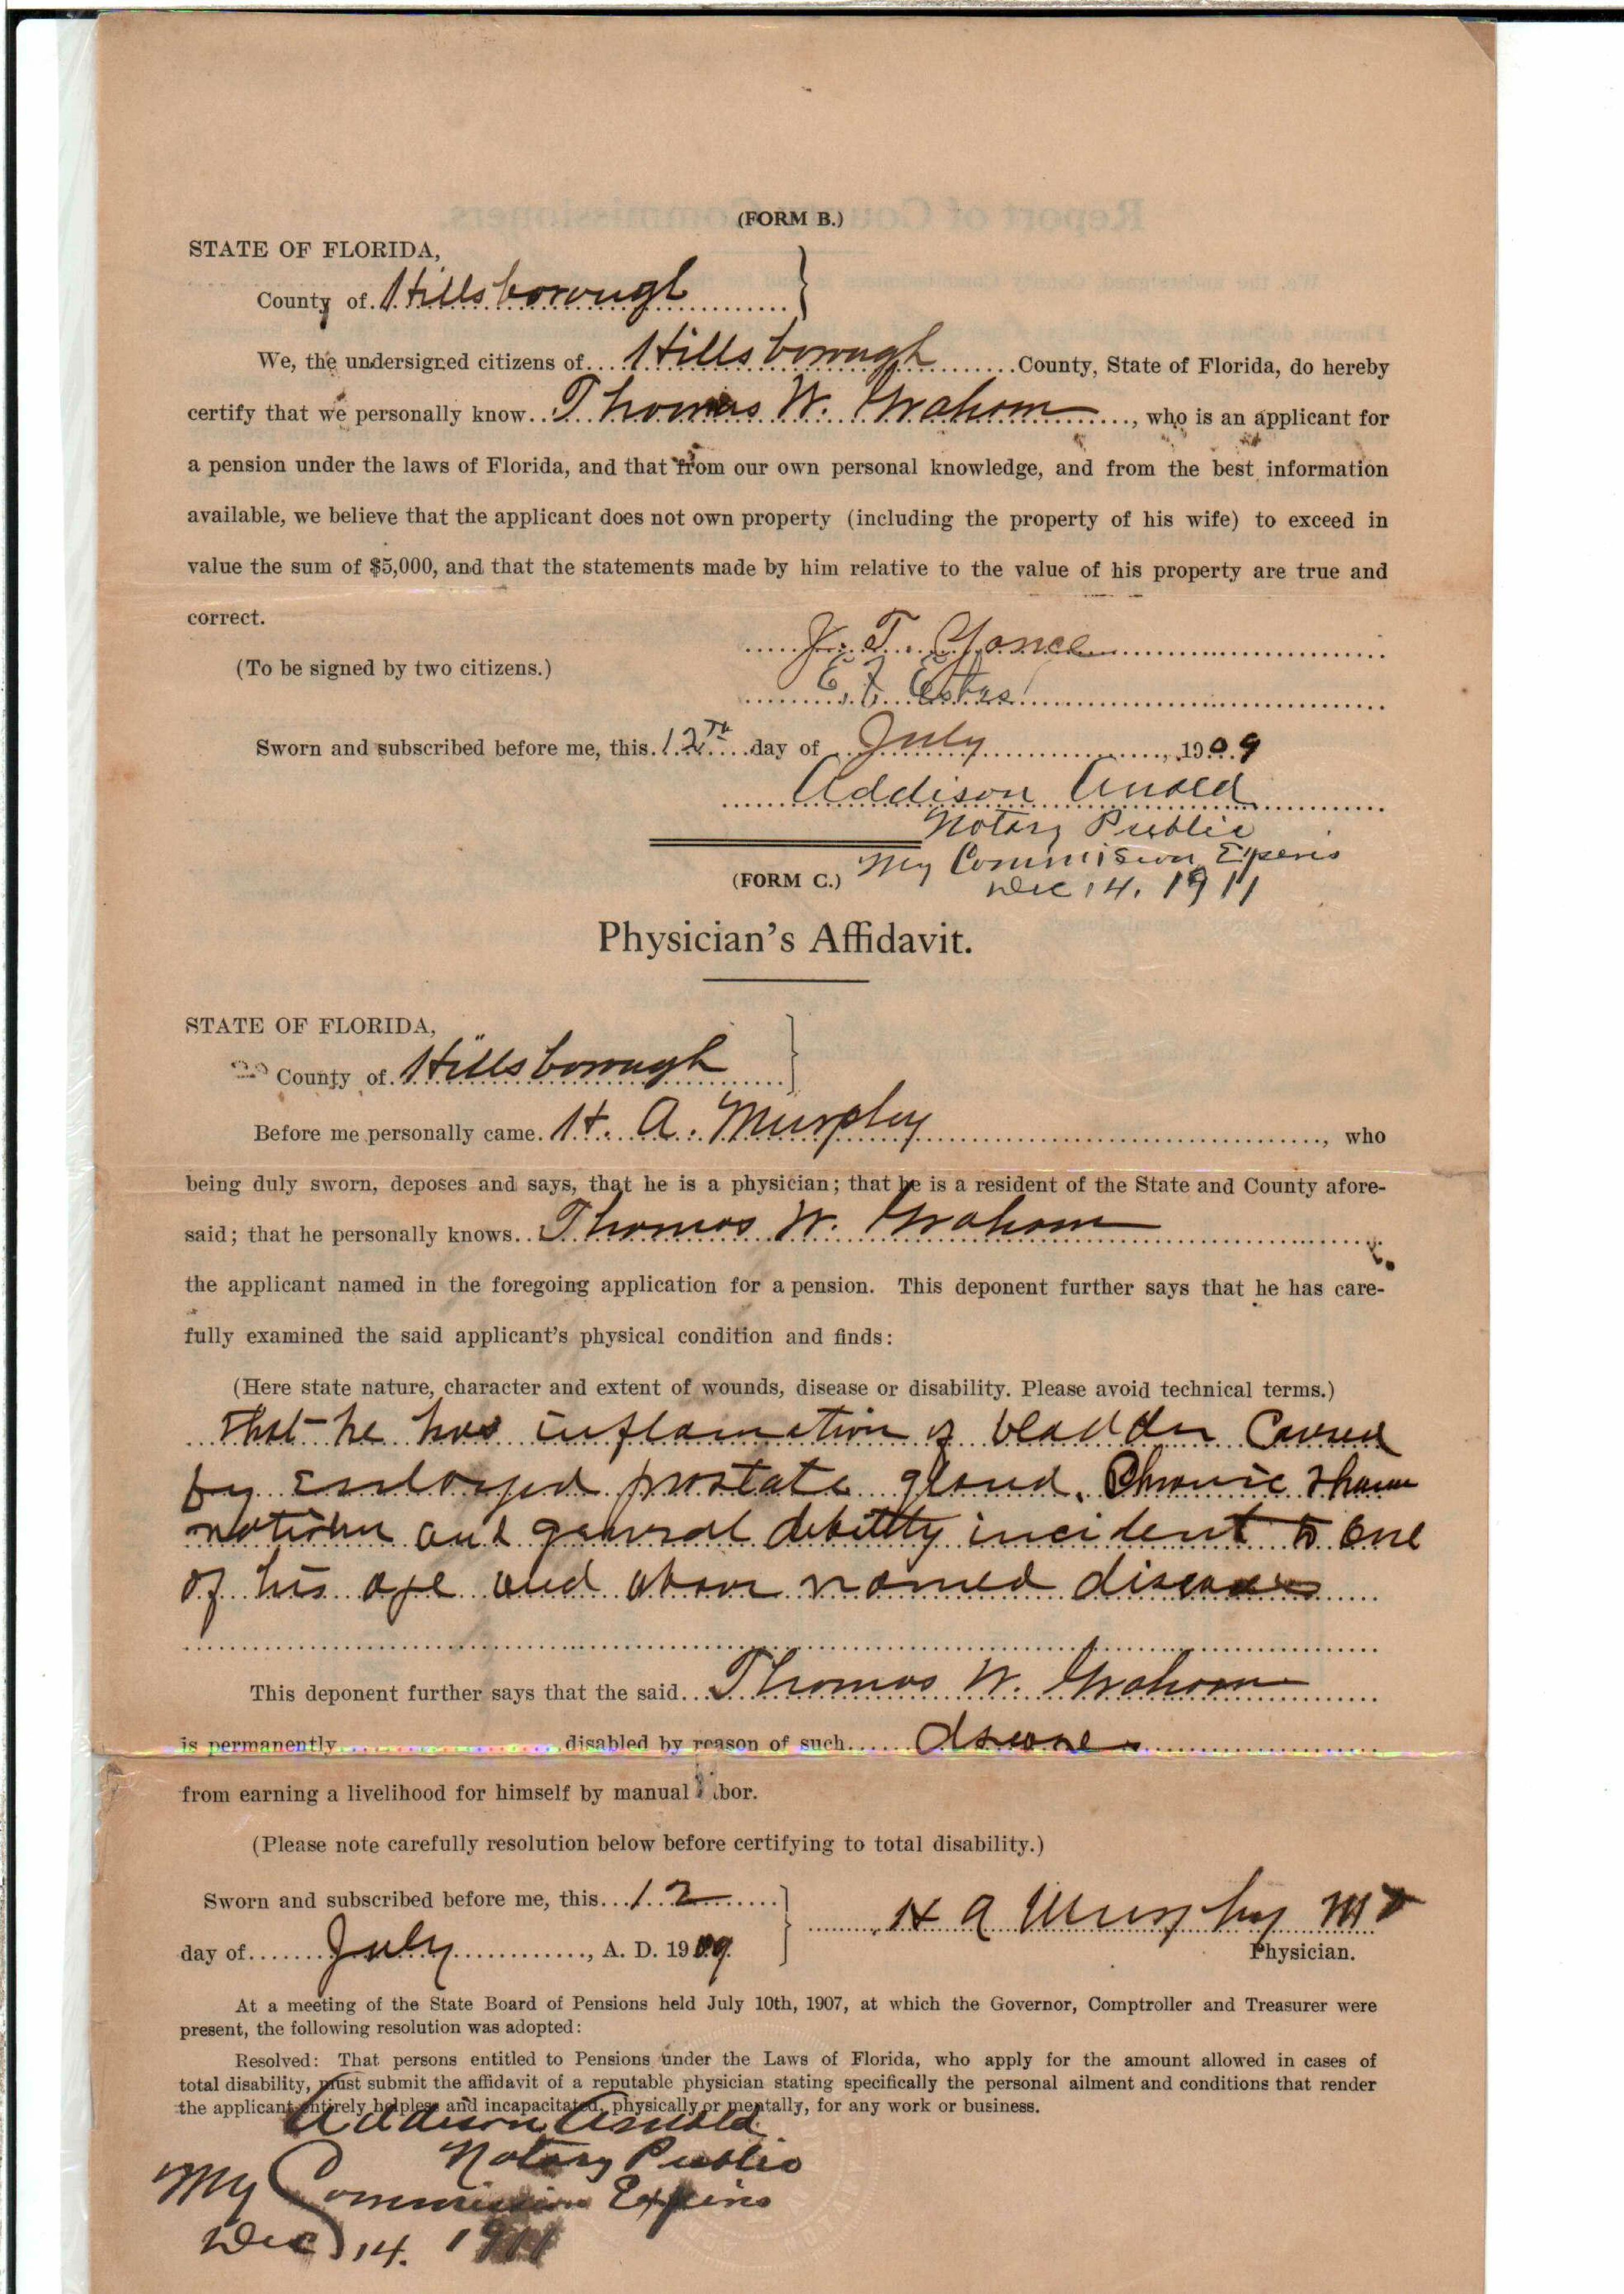 (FORM B.)
STATE OF FLORIDA,
County of Hillsborough
We, the undersigned citizens of Hillsborough County, State of Florida, do hereby
certify that we personally know Thomas W. Graham, who is an applicant for
a pension under the laws of Florida, and that from our own personal knowledge, and from the best information
available, we believe that the applicant does not own property (including the property of his wife) to exceed in
value the sum of $5,000, and that the statements made by him relative to the value of his property are true and
correct.
J. T. Yonce
(To be signed by two citizens.)
E. F. Estes
Sworn and subscribed before me, this 12th day of July, 1909
Addison Arnold
Notary Public
My Commision Expires
(FORM C.)
Dec 14, 1911
Physician's Affidavit.
STATE OF FLORIDA,
County of Hillsborough
Before me personally came H. A. Murphy, who
being duly sworn, deposes and says, that he is a physician; that he is a resident of the State and County afore-
said; that he personally knows Thomas W. Graham
the applicant named in the foregoing application for a pension. This deponent further says that he has care-
fully examined the said applicant's physical condition and finds:
(Here state nature, character and extent of wounds, disease or disability. Please avoid technical terms.)
That he has inflamation of bladder Caused
by Enlarged prostate gland. Chronic
and general debility incident to one
of his age and above named diseases
This deponent further says that the said Thomas W. Graham
is permanently disabled by reason of such disease
from earning a livelihood for himself by manual labor.
(Please note carefully resolution below before certifying to total disability.)
Sworn and subscribed before me, this 12
H A Murphy MD
day of July, A. D. 1909.
Physician.
At a meeting of the State Board of Pensions held July 10th, 1907, at which the Governor, Comptroller and Treasurer were
present, the following resolution was adopted:
Resolved: That persons entitled to Pensions under the Laws of Florida, who apply for the amount allowed in cases of
total disability, must submit the affidavit of a reputable physician stating specifically the personal ailment and conditions that render
the applicant entirely helpless and incapacitated, physically or mentally, for any work or business.
Addison Arnold
Notary Public
My Commission Expires
Dec 14. 1911